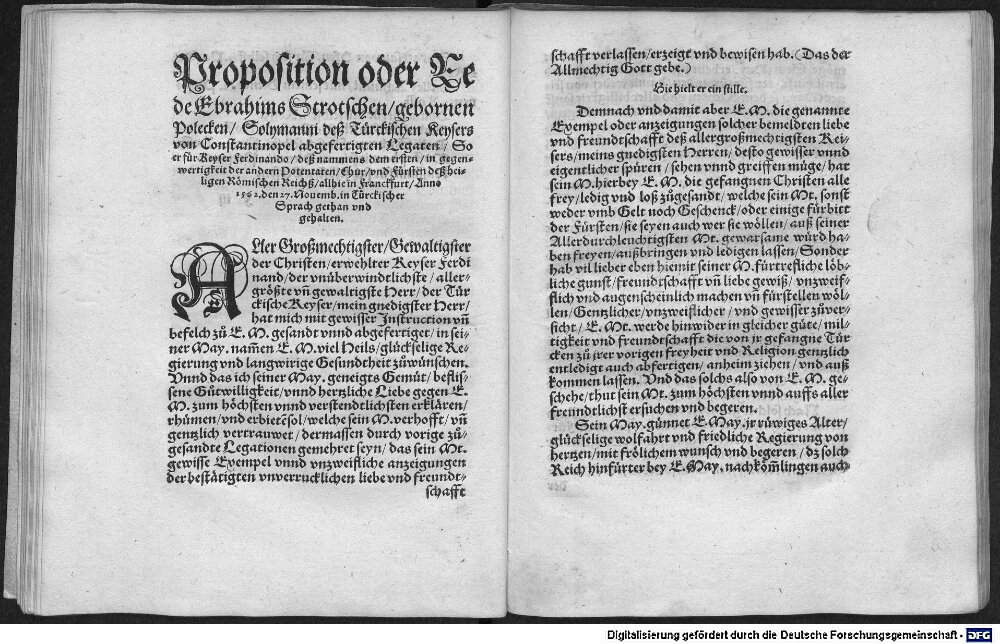 Proposition oder Re
de Ebrahims Strotschen/gebornen
Polecken/ Solymanni deß Türckischen Keysers
von Constantinopel abgefertigten Legaten/ So
er für Keyser Ferdinando/deß nammens dem ersten/in gegen-
wertigkeit der andern Potentaten/Chur/vnd Fürsten deß hei-
ligen Römischen Reichß/allhie in Franckfurt/Anno
1562.den 27.Nouemb.in Türckischer
Sprach gethan vnd
gehalten.
ALler Großmechtigster/Gewaltigster
der Christen/erwehlter Keyser Ferdi
nand/der vnüberwindtlichste/aller-
größte vñ gewaltigste Herr/der Tür
ckische Keyser/mein gnedigster Herr/
hat mich mit gewisser Instruction vñ
befelch zů E.M. gesandt vnnd abgefertiget/in sei-
ner May.nam̃en E.M.viel Heils/glückselige Re-
gierung vnd langwirige Gesundtheit zůwünschen.
Vnnd das ich seiner May.geneigts Gemüt/beflis-
sene Gůtwilligkeit/vnnd hertzliche Liebe gegen E.
M.zum höchsten vnnd verstendtlichsten erklären/
rhümen/vnd erbietẽ sol/welche sein M.verhofft/vñ
gentzlich vertrauwet/dermassen durch vorige zů-
gesandte Legationen gemehret seyn/das sein Mt.
gewisse Exempel vnnd vnzweifliche anzeigungen
der bestätigten vnverrucklichen liebe vnd freundt-
schafft
schafft verlassen/erzeigt vnd bewisen hab.(Das der
Allmechtig Gott gebe.)
Hie hielt er ein stille.
Demnach vnd damit aber E.M.die genannte
Exempel oder anzeigungen solcher bemeldten liebe
vnd freundtschafft deß allergroßmechtigsten Kei-
sers/meins gnedigsten Herren/desto gewisser vnnd
eigentlicher spüren/sehen vnnd greiffen müge/hat
sein M.hierbey E.M.die gefangnen Christen alle
frey/ledig vnd loß zůgesandt/welche sein Mt.sonst
weder vmb Gelt noch Geschenck/oder einige fürbitt
der Fürsten/sie seyen auch wer sie wöllen/auß seiner
Allerdurchleuchtigsten Mt.gewarsame würd ha-
ben freyen/außbringen vnd ledigen lassen/Sonder
hab vil lieber eben hiemit seiner M.fürtrefliche löb-
liche gunst/freundtschafft vñ liebe gewiß/vnzweif-
flich vnd augenscheinlich machen vñ fürstellen wöl-
len/Gentzlicher/vnzweiflicher/vnd gewisser züver-
sicht/E.Mt.werde hinwider in gleicher güte/mil-
tigkeit vnd freundtschafft die von jr gefangne Tür
cken zů jrer vorigen freyheit vnd Religion gentzlich
entledigt auch abfertigen/anheim ziehen/vnd auß
kommen lassen. Vnd das solchs also von E.M.ge-
schehe/thut sein Mt.zum höchsten vnnd auffs aller
freundtlichst ersuchen vnd begeren.
Sein May.günnet E.May.jr růwiges Alter/
glückselige wolfahrt vnd friedliche Regierung von
hertzen/mit frölichem wunsch vnd begeren/dz solch
Reich hinfürter bey E.May.nachkom̃lingen auch
Digitalisierung gefördert durch die Deutsche Forschungsgemeinschaft - DFG